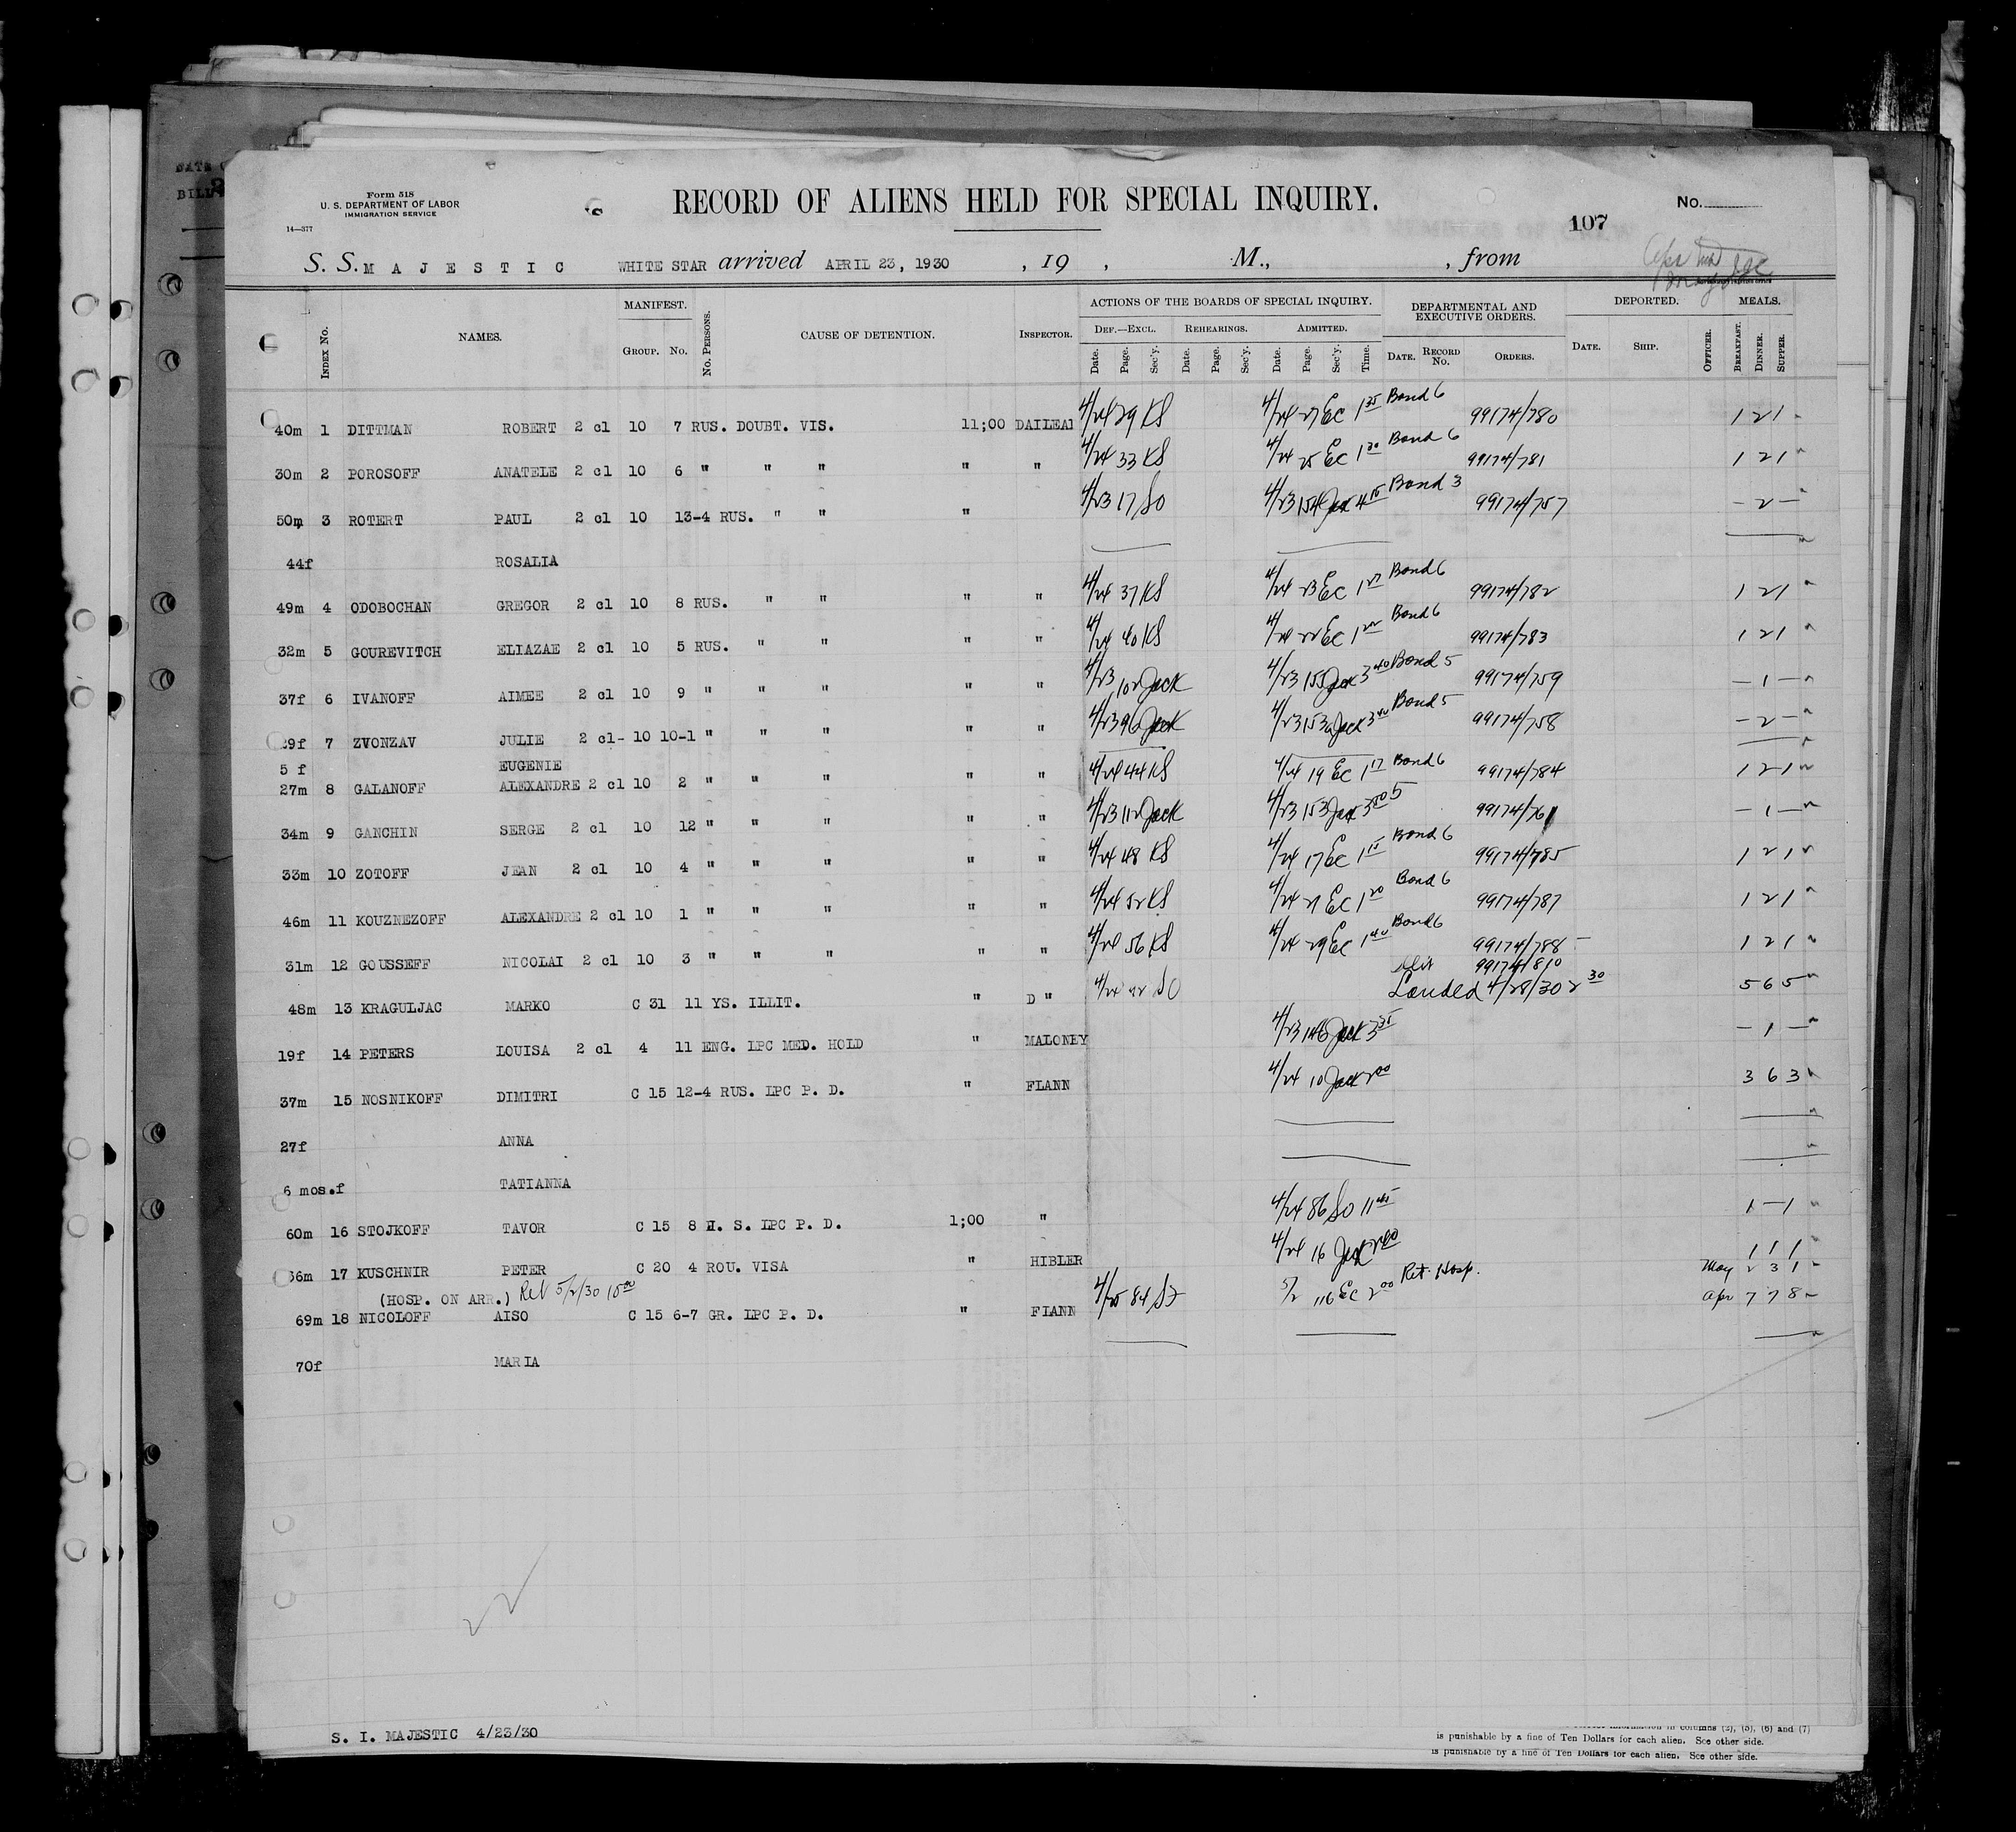 DATE
BILL
Form 518
U. S. DEPARTMENT OF LABOR
IMMIGRATION SERVICE
14—377
RECORD OF ALIENS HELD FOR SPECIAL INQUIRY.
No.
107
S. S. M A J E S T I C WHITE STAR arrived APRIL 23, 1930 , 19 , M., , from
Index No. NAMES. MANIFEST. Group. No. No. Persons. CAUSE OF DETENTION. Inspector. ACTIONS OF THE BOARDS OF SPECIAL INQUIRY. DEPARTMENTAL AND EXECUTIVE ORDERS. DEPORTED. MEALS.
Def.—Excl. Rehearings. Admitted.
Date. Page. Sec'y. Date. Page. Sec'y. Date. Page. Sec'y. Time. Date. Record No. Orders. Date. Ship. Officer. Breakfast. Dinner. Supper.
40m 1 DITTMAN ROBERT 2 cl 10 7 RUS. DOUBT. VIS. 11;00 DAILEA 4/24 29 KS 4/24 27 EC 1 35 Bond 6 99174/780 1 2 1
30m 2 POROSOFF ANATELE 2 cl 10 6 " " " " " 4/24 33 KS 4/24 25 EC 1 30 Bond 6 99174/781 1 2 1
50m 3 ROTERT PAUL 2 cl 10 13-4 RUS. " " " 4/23 17 SO 4/23 154 Jack 4 15 Bond 3 99174/757 — 2 —
44f ROSALIA
49m 4 ODOBOCHAN GREGOR 2 cl 10 8 RUS. " " " " 4/24 37 KS 4/24 23 EC 1 27 Bond 6 99174/782 1 2 1
32m 5 GOUREVITCH ELIAZAE 2 cl 10 5 RUS. " " " " 4/24 40 KS 4/24 22 EC 1 22 Bond 6 99174/783 1 2 1
37f 6 IVANOFF AIMEE 2 cl 10 9 " " " " " 4/23 102 Jack 4/23 155 Jack 3 40 Bond 5 99174/759 — 1 —
29f 7 ZVONZAV JULIE 2 cl- 10 10-1 " " " " " 4/23 96 Jack 4/23 153a Jack 3 40 Bond 5 99174/758 — 2 —
5 f EUGENIE
27m 8 GALANOFF ALEXANDRE 2 cl 10 2 " " " " " 4/24 44 KS 4/24 19 EC 1 17 Bond 6 99174/784 1 2 1
34m 9 GANCHIN SERGE 2 cl 10 12 " " " " " 4/23 112 Jack 4/23 153 Jack 3 50 5 99174/761 — 1 —
33m 10 ZOTOFF JEAN 2 cl 10 4 " " " " " 4/24 48 KS 4/24 17 EC 1 15 Bond 6 99174/785 1 2 1
46m 11 KOUZNEZOFF ALEXANDRE 2 cl 10 1 " " " " " 4/24 52 KS 4/24 21 EC 1 20 Bond 6 99174/787 1 2 1
31m 12 GOUSSEFF NICOLAI 2 cl 10 3 " " " " " 4/24 56 KS 4/24 29 EC 1 40 Bond 6 99174/788 — 1 2 1
99174/810
48m 13 KRAGULJAC MARKO C 31 11 YS. ILLIT. " D " 4/24 92 SO Landed 4/28/30 2 30 5 6 5
19f 14 PETERS LOUISA 2 cl 4 11 ENG. LPC MED. HOLD " MALONEY 4/23 146 Jack 3 35 — 1 —
37m 15 NOSNIKOFF DIMITRI C 15 12-4 RUS. LPC P. D. " FLANN 4/24 10 Jack 2 00 3 6 3
27f ANNA
6 mos.f TATIANNA
60m 16 STOJKOFF TAVOR C 15 8 H. S. LPC P. D. 1;00 " 4/24 86 SO 11 45 1 — 1
36m 17 KUSCHNIR PETER C 20 4 ROU. VISA " HIBLER 4/24 16 Jack 2 40 1 1 1
May 2 3 1
(HOSP. ON ARR.) Rel 5/2/30 10 00
69m 18 NICOLOFF AISO C 15 6-7 GR. LPC P. D. " FLANN 4/25 84 5/2 116 EC 2 00 Ret. Hosp. Apr 7 7 8
70f MARIA
S. I. MAJESTIC 4/23/30
in columns (2), (5), (6) and (7)
is punishable by a fine of Ten Dollars for each alien. See other side.
is punishable by a fine of Ten Dollars for each alien. See other side.